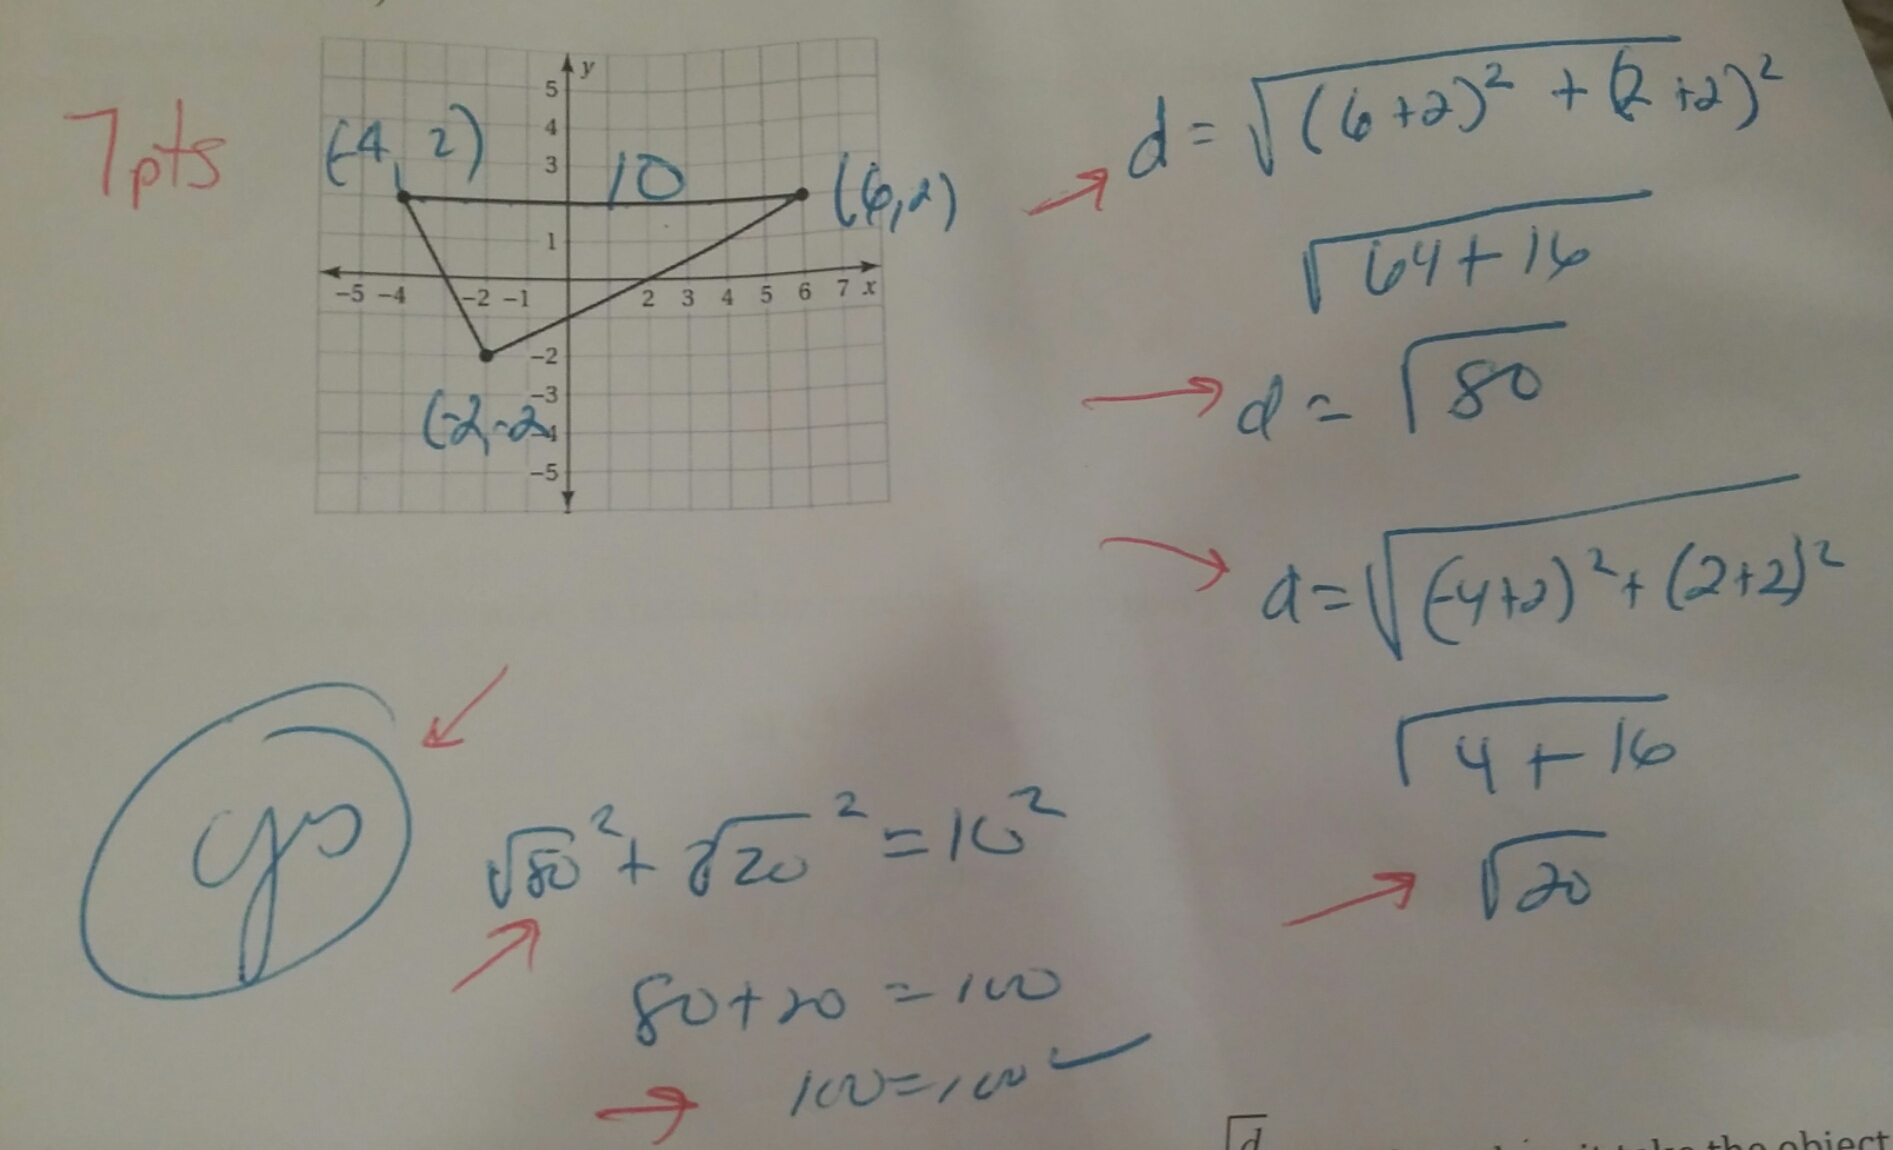 7pts
(-4, 2)
10
(6,2)
(-2,-2
y
5
4
3
1
-5 -4 -2 -1 2 3 4 5 6 7 x
-2
-3
-4
-5
d = √(6+2)² + (2+2)²
√64+16
d = √80
d = √(-4+2)² + (2+2)²
√4+16
√20
yes
√80² + √20² = 10²
80+20 = 100
100=100 ✓
√d
take the object